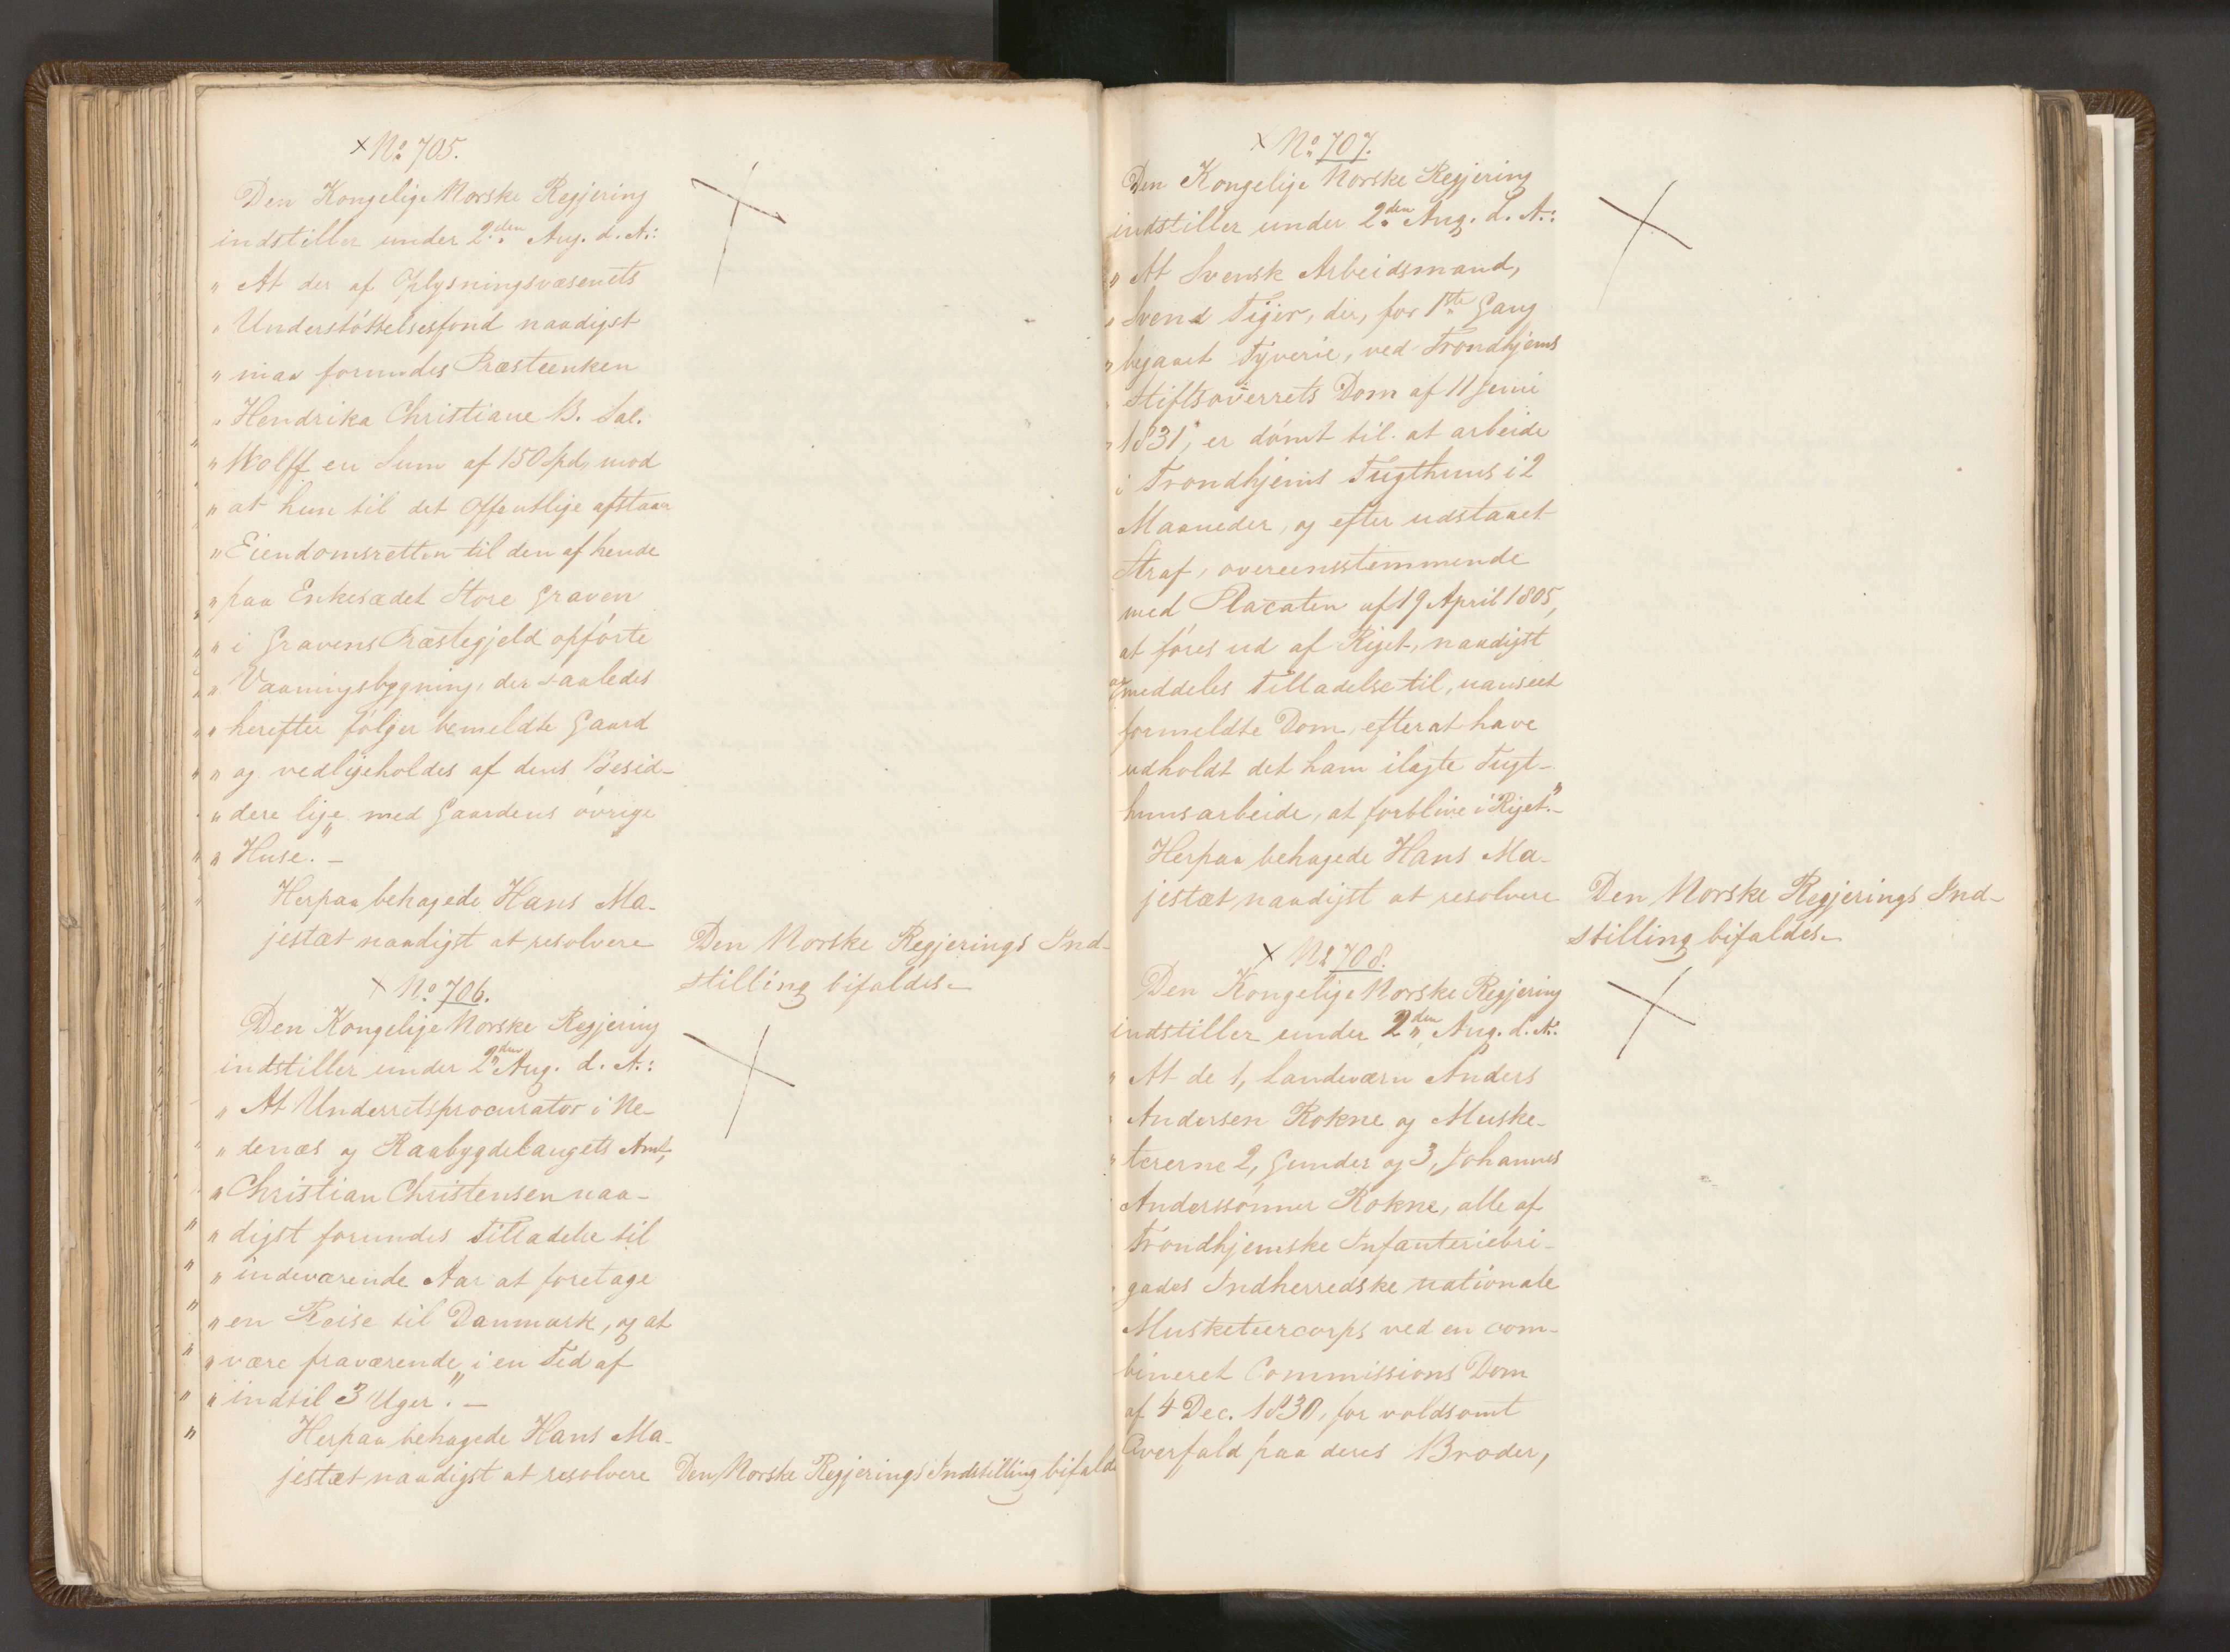 × No 705.
Den Kongelige Norske Regjering
indstiller under 2den Aug. d. A.:
" At der af Oplysningsvæsenets
" Understöttelsesfond naadigst
" maa forundes Præsteenken
" Hendrika Christiane B. Sal.
" Wolff en Sum af 150 Spd, mod
" at hun til det Offentlige afstaaer
" Eiendomsretten til den af hende
" paa Enkesædet Store Graven
" i Gravens Præstegjeld opförte
" Vaaningsbygning, der saaledes
" herefter fölger bemeldte Gaard
" og vedligeholdes af dens Besid-
" dere lige med Gaardens övrige
" Huse." –
Herpaa behagede Hans Ma-
jestæt naadigst at resolvere
Den Norske Regjerings Ind-
stilling bifaldes.–
× No 706.
Den Kongelige Norske Regjering
indstiller under 2den Aug. d. A.:
" At Underretsprocurator i Ne-
" denæs og Raabygdelaugets Amt,
" Christian Christensen naa-
" digst forundes Tilladelse til
" indeværende Aar at foretage
" en Reise til Danmark, og at
" være fraværende i en Tid af
" indtil 3 Uger". –
Herpaa behagede Hans Ma-
jestæt naadigst at resolvere
Den Norske Regjerings Indstilling bifalde
× No 707.
Den Kongelige Norske Regjering
indstiller under 2den Aug. d. A.:
" At Svensk Arbeidsmand,
" Svend Tiger, der, for 1ste Gang
" begaaet Tyverie, ved Trondhjems
" Stiftsoverrets Dom af 11 Juni
" 1831, er dömt til at arbeide
i Trondhjems Tugthuus i 2
Maaneder, og efter udstaaet
Straf, overeensstemmende
med Placaten af 19 April 1805,
at föres ud af Riget, naadigst
meddeles Tilladelse til, uanseet
formeldte Dom, efter at have
udholdt det ham ilagte Tugt-
huusarbeide, at forblive i Riget." –
Herpaa behagede Hans Ma-
jestæt naadigst at resolvere
Den Norske Regjerings Ind-
stilling bifaldes.–
× No 708.
Den Kongelige Norske Regjering
indstiller under 2den Aug. d. A.:
" At de 1, Landeværn Anders
" Andersen Rokne og Muske-
" tererne 2, Gunder og 3, Johannes
Anderssönner Rokne, alle af
Trondhjemske Infanteriebri-
gades Indherredske nationale
Musketeercorps ved en com-
bineret Commissions Dom
af 4 Dec. 1830, for voldsomt
Overfald paa deres Broder,